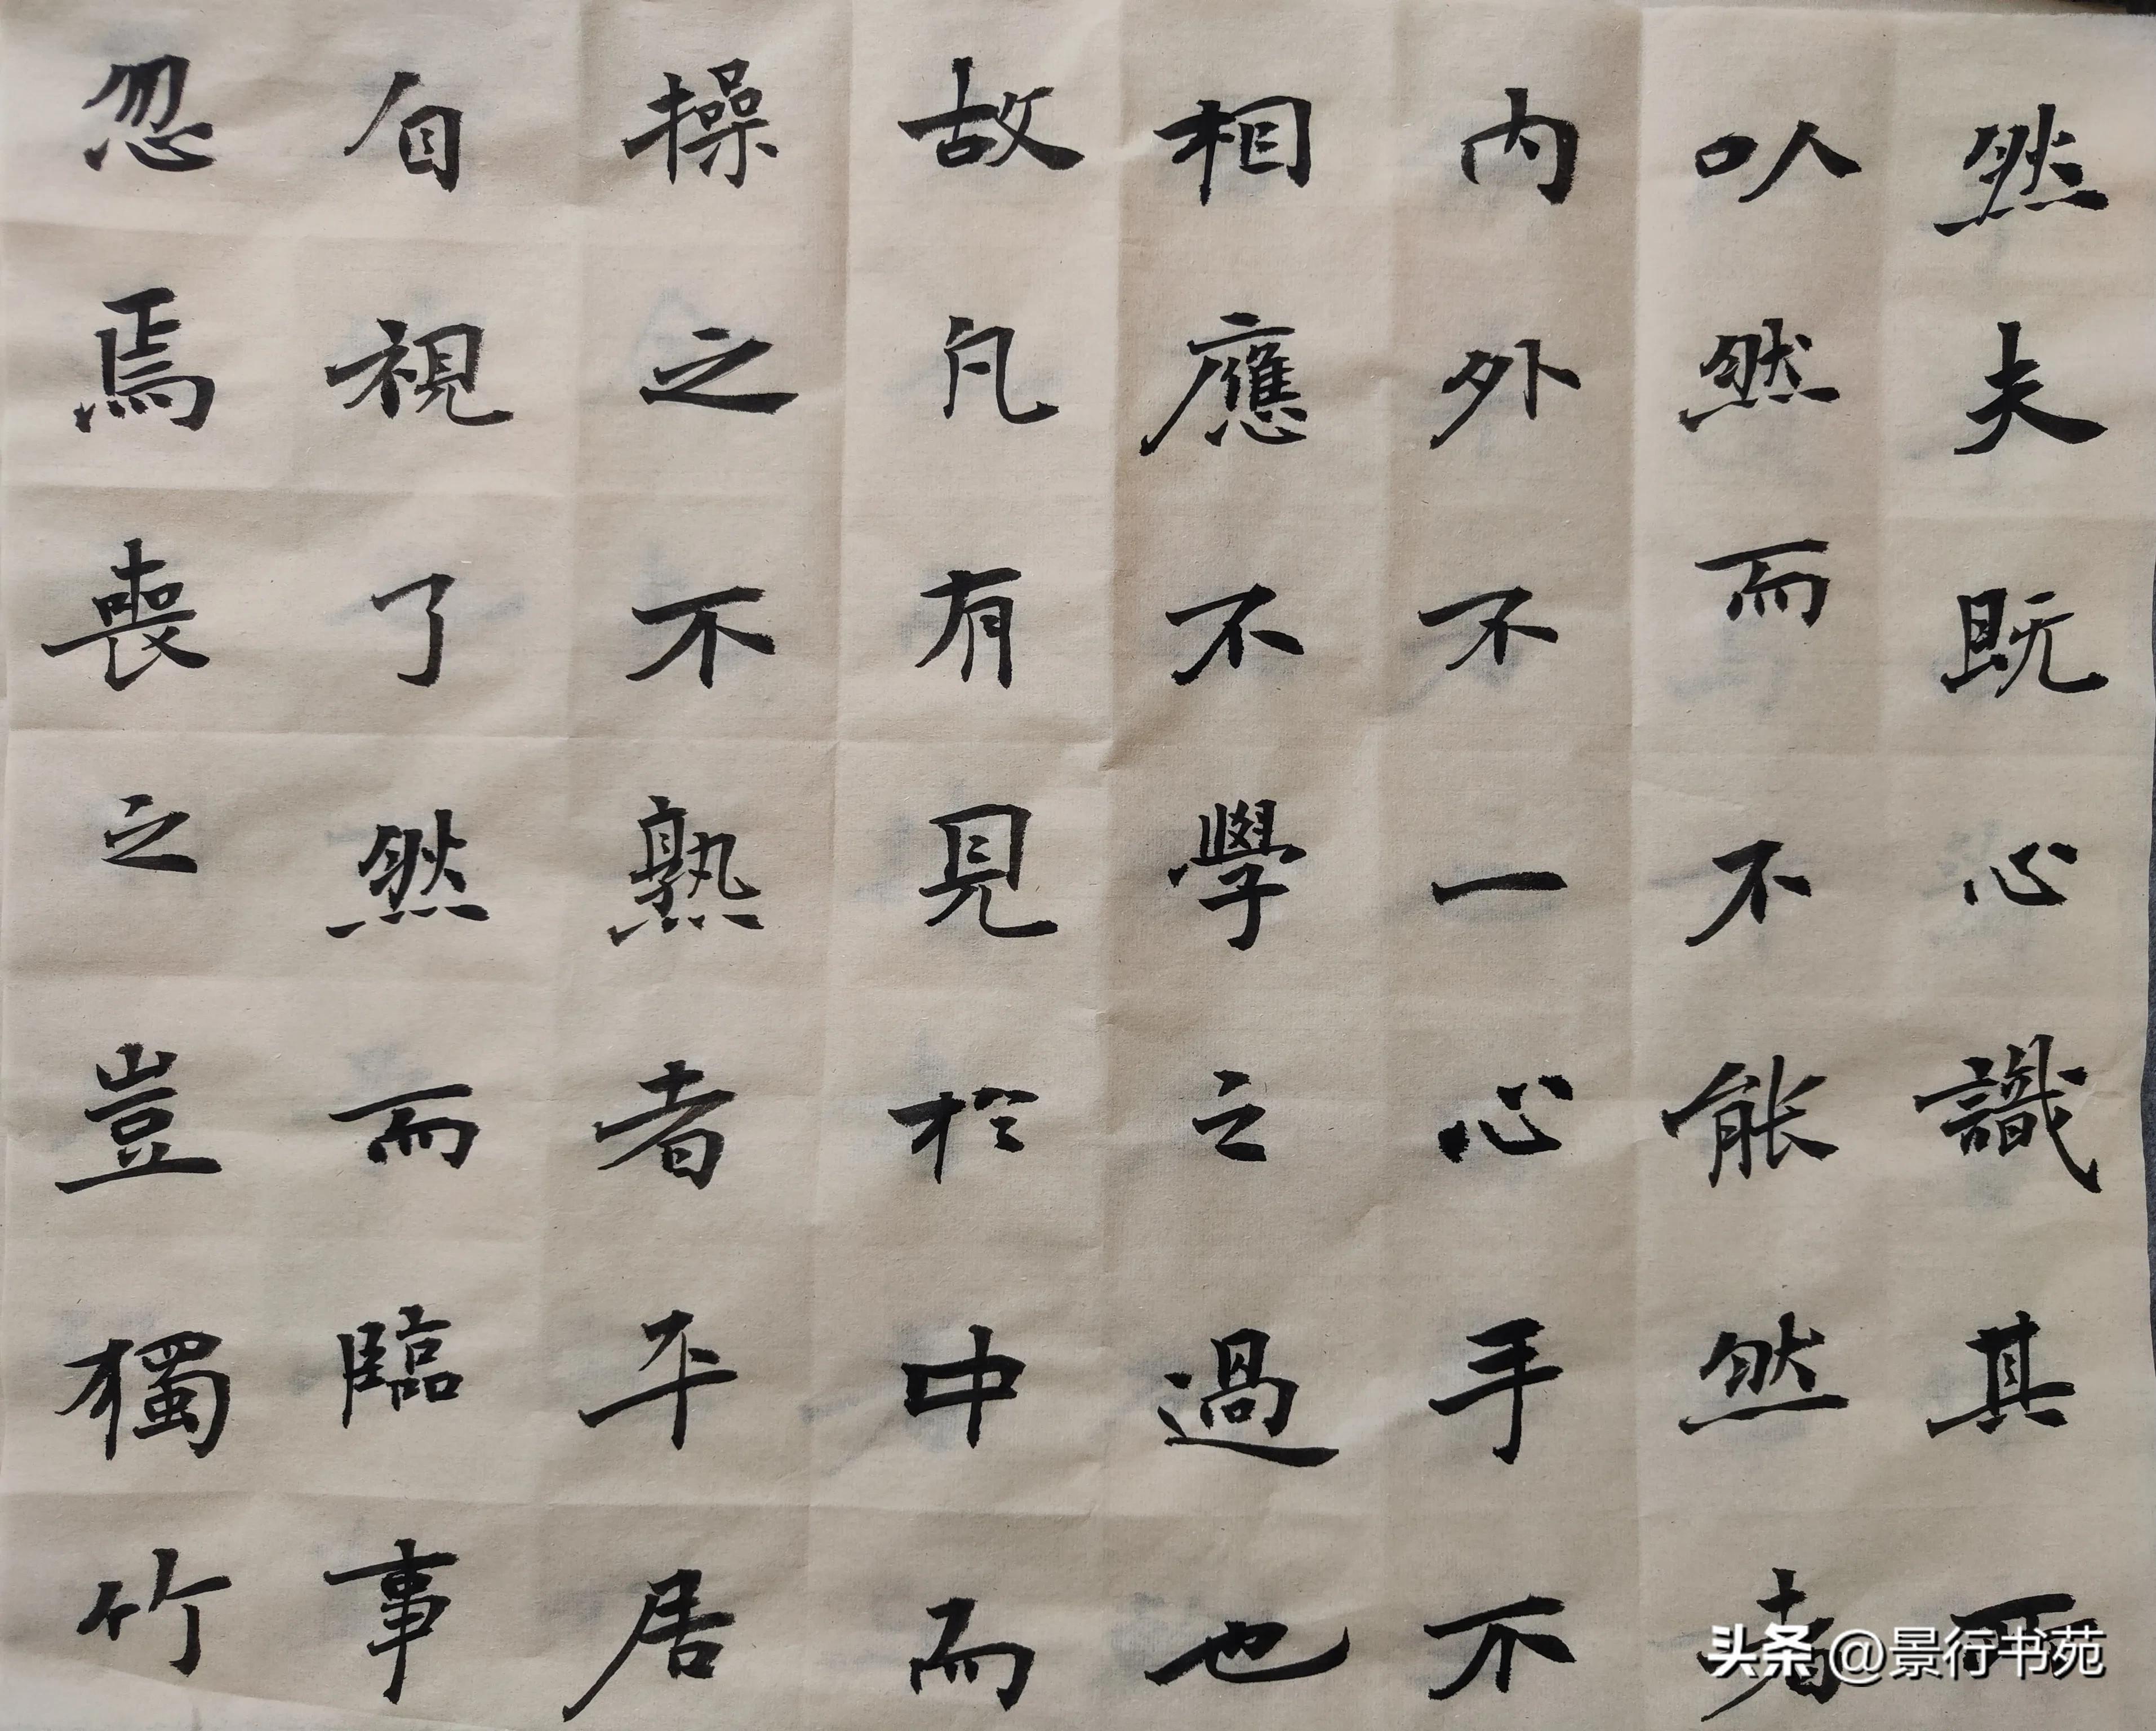 然夫既心識其所
以然而不能然者
内外不一心手不
相應不學之過也
故凡有見於中而
操之不熟者平居
自視了然而臨事
忽焉喪之豈獨竹
头条@景行书苑